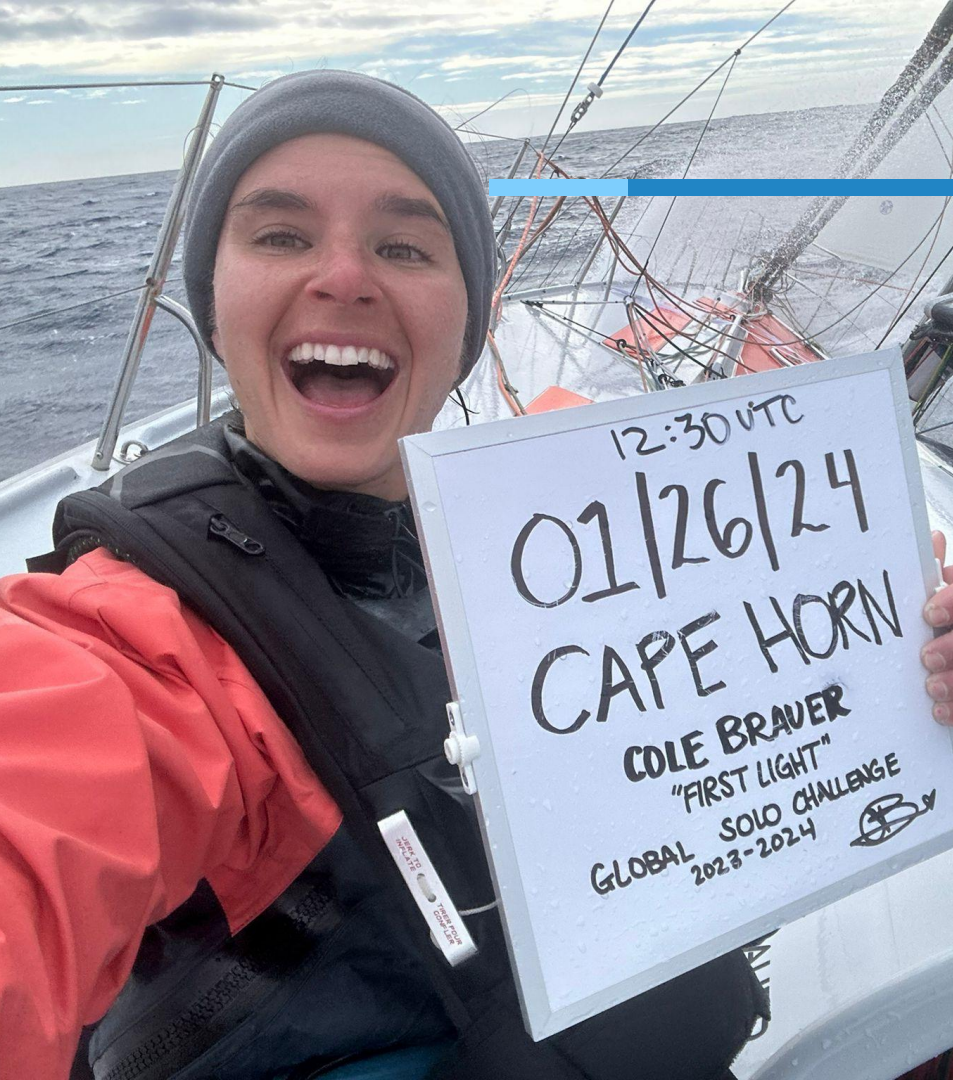 12:30 UTC
01/26/24
CAPE HORN
COLE BRAUER
"FIRST LIGHT"
GLOBAL SOLO CHALLENGE
2023-2024
JERK TO
INFLATE
TIRER POUR
GONFLER